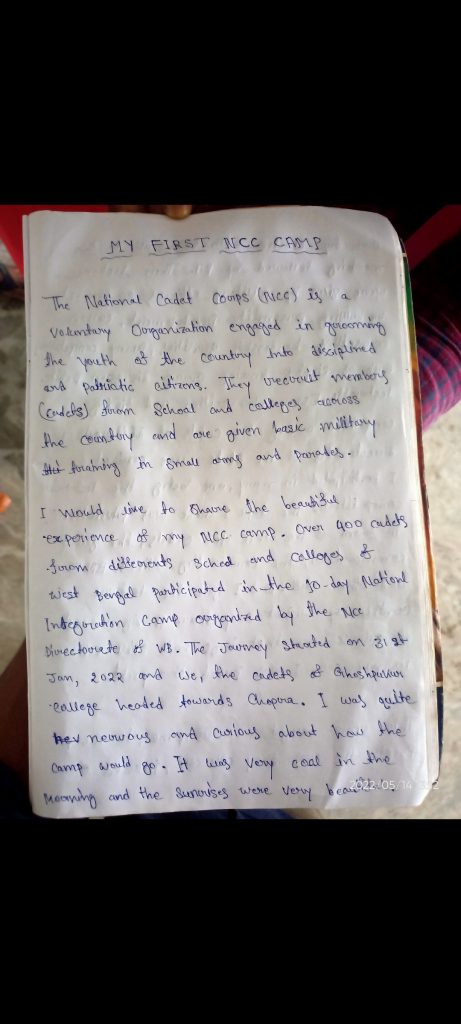 MY FIRST NCC CAMP
The National Cadet Coorps (NCC) is a
Voluntary Ourganization engaged in gurooming
the youth of the country into disciplined
and patriotic citizens. They recruit members
(cadets) from School and colleges across
the country and are given basic military
training in small arms and parades.
I would like to Share the beautiful
experience of my NCC camp. Over 400 cadets
from differents School and colleges of
West Bengal participated in the 10-day Nationl
Integration Camp organized by the Ncc
Directorate of WB. The Journey Started on 31 st
Jan, 2022 and we, the cadets of Ghoshpukur
college headed towards Chopra. I was quite
nervous and curious about how the
camp would go. It was very cool in the
Morning and the Sunrises were very
2022/05/14